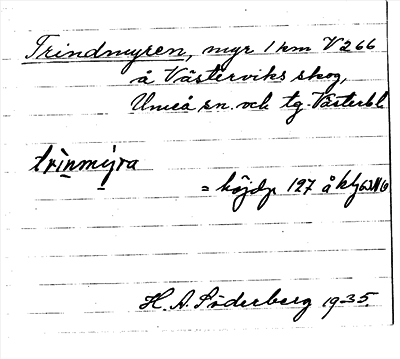 Trindmyren, myr 1 km V 266
å Västerviks skog,
Umeå sn. och tg. Västerb.
trìnmýra
= höjdp 127 å kbl 63 N 6
H. A. Söderberg 1935.